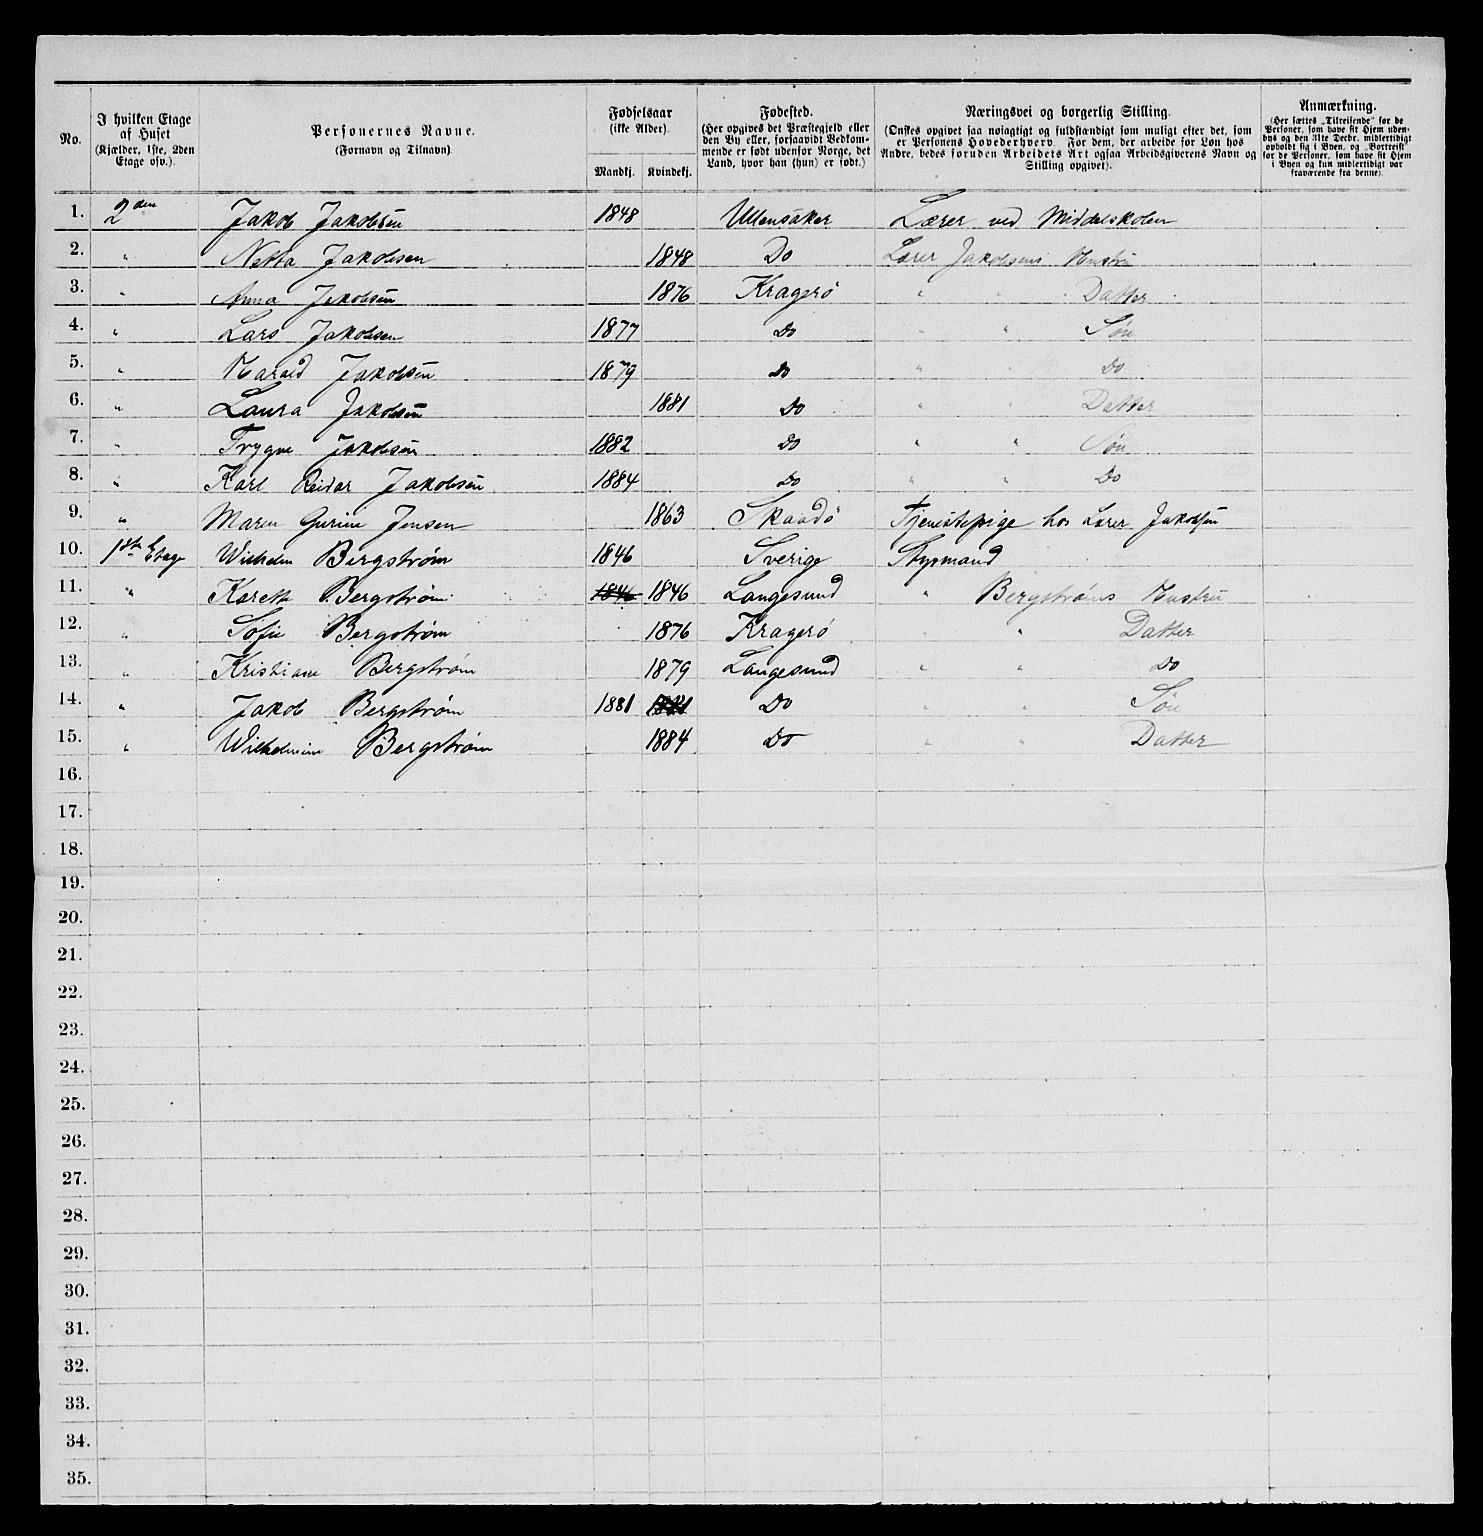 No.
I hvilken Etage af Huset (Kjælder, 1ste, 2den Etage osv.).
Personernes Navne. (Fornavn og Tilnavn).
Fødselsaar (ikke Alder).
Mandkj. Kvindekj.
Fødested. (Her opgives det Præstegjeld eller den By eller, forsaavidt Vedkommende er født udenfor Norge, det Land, hvor han (hun) er født.)
Næringsvei og borgerlig Stilling. (Ønskes opgivet saa nøiagtigt og fuldstændigt som muligt efter det, som er Personens Hovederhverv. For dem, der arbeide for Løn hos Andre, bedes foruden Arbeidets Art ogsaa Arbeidsgiverens Navn og Stilling opgivet).
Anmærkning. (Her sættes „Tilreisende" for de Personer, som have sit Hjem udenbys og den 31te Decbr. midlertidigt opholdt sig i Byen, og „Bortreist" for de Personer, som have sit Hjem i Byen og kun midlertidigt var fraværende fra denne).
1. 2den Jakob Jakobsen 1848 Ullensaker Lærer ved Middelskolen
2. " Netta Jakobsen 1848 Do Lærer Jakobsens Hustru
3. " Anna Jakobsen 1876 Kragerø " " Datter
4. " Lars Jakobsen 1877 Do " " Søn
5. " Harald Jakobsen 1879 Do " " Do
6. " Laura Jakobsen 1881 Do " " Datter
7. " Trygve Jakobsen 1882 Do " " Søn
8. " Karl Reidar Jakobsen 1884 Do " " Do
9. " Maren Gurine Jensen 1863 Skaadø Tjenistepige hos Lærer Jakobsen
10. 1ste Etage Wilhelm Bergstrøm 1846 Sverige Stypmand
11. " Karett Bergstrøm 1846 1846 Langesund " Bergstrøms Hustru
12. " Sofie Bergstrøm 1876 Kragerø " " Datter
13. " Kristiane Bergstrøm 1879 Langesund " " Do
14. " Jakob Bergstrøm 1881 1881 Do " " Søn
15. " Wilhelmine Bergstrøm 1884 Do " " Datter
16.
17.
18.
19.
20.
21.
22.
23.
24.
25.
26.
27.
28.
29.
30.
31.
32.
33.
34.
35.